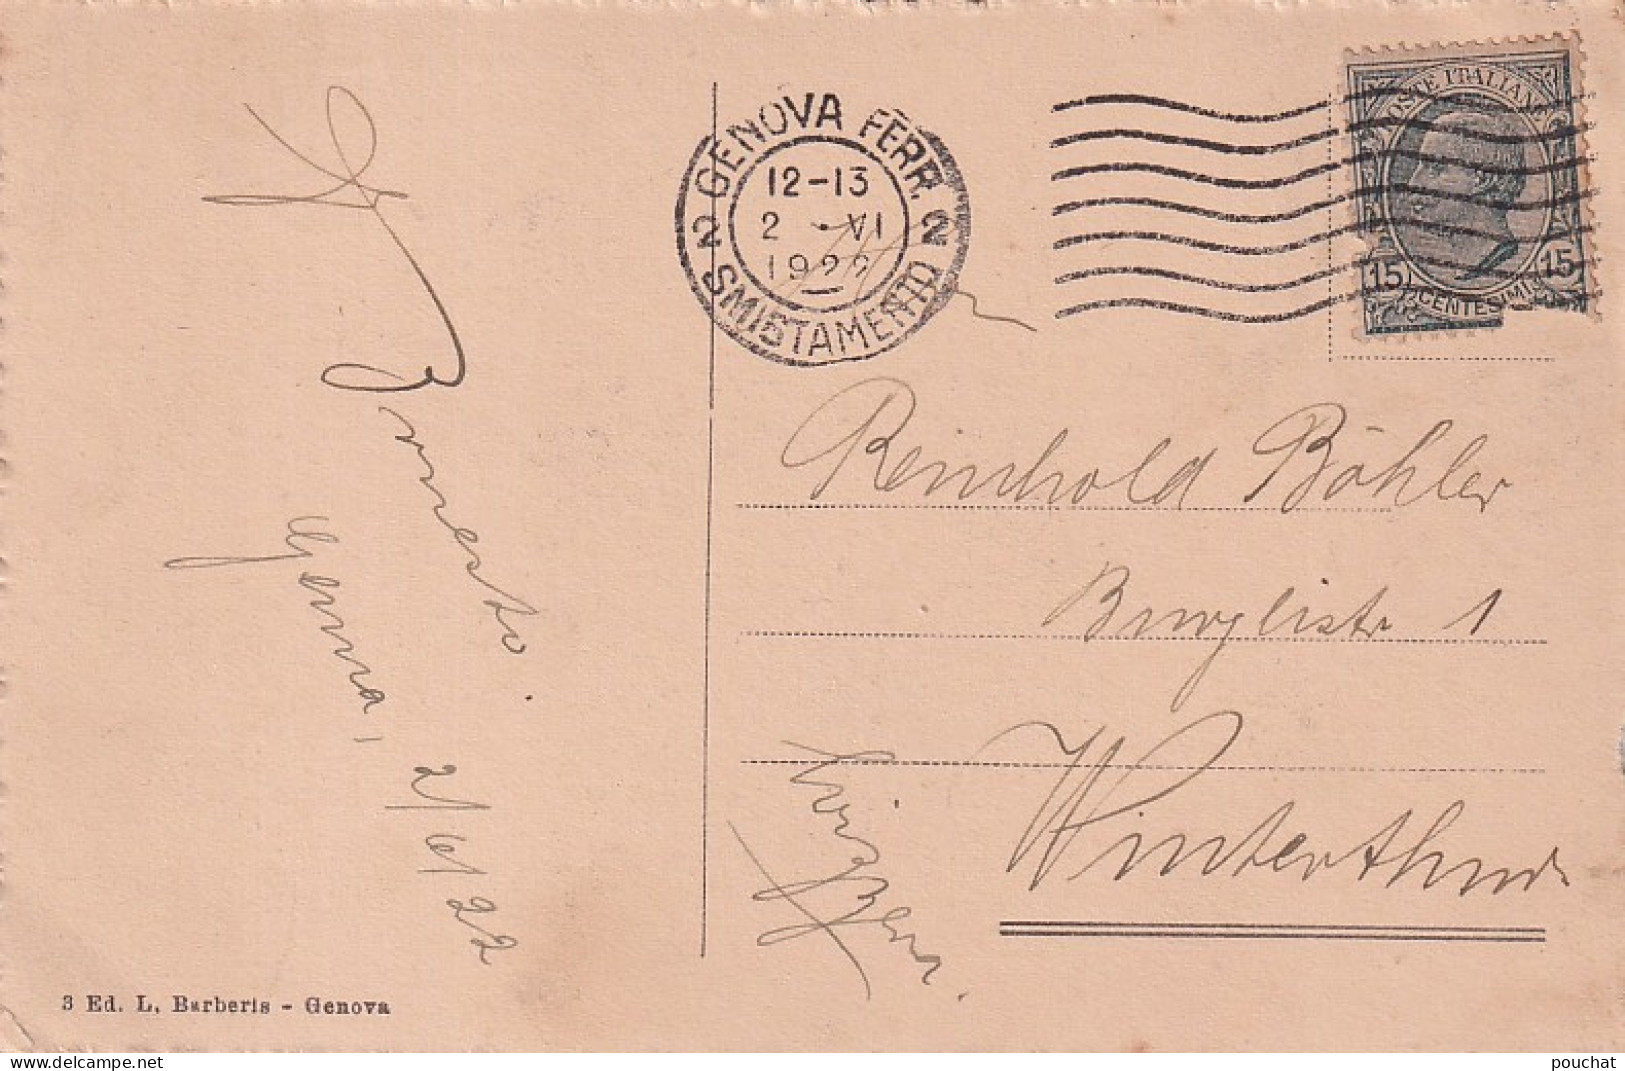 Ernesto.
Genua, 2/6/22
3 Ed. L. Barberis - Genova
GENOVA FERR.
2 2
12-13
2 · VI
1922
SMISTAMENTO
POSTE ITALIANE
15 15
CENTESIMI
Reinhold Böhler
Burglistr 1
Winterthur
delcampe.net
pouchat